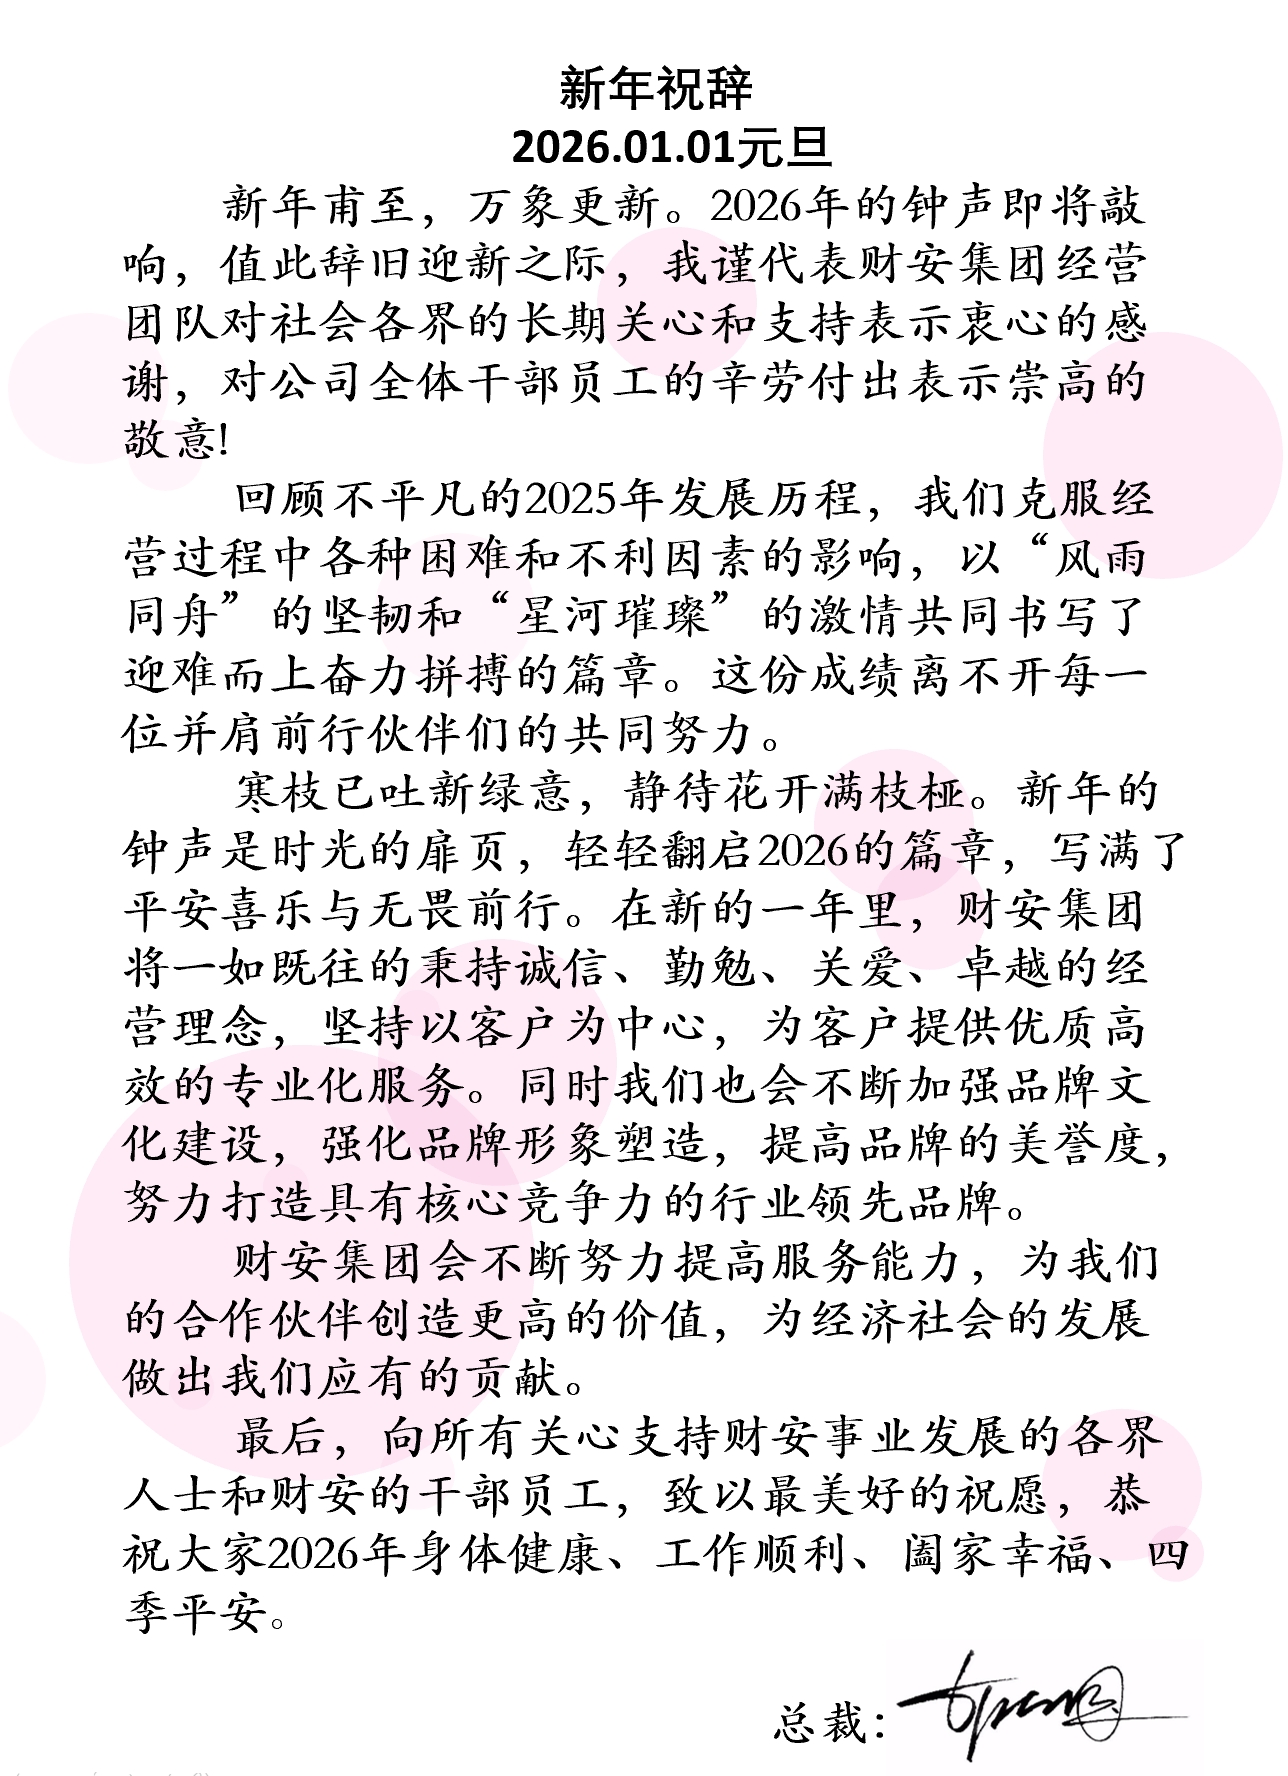 新年祝辞
2026.01.01元旦
新年甫至，万象更新。2026年的钟声即将敲
响，值此辞旧迎新之际，我谨代表财安集团经营
团队对社会各界的长期关心和支持表示衷心的感
谢，对公司全体干部员工的辛劳付出表示崇高的
敬意!
回顾不平凡的2025年发展历程，我们克服经
营过程中各种困难和不利因素的影响，以“风雨
同舟”的坚韧和“星河璀璨”的激情共同书写了
迎难而上奋力拼搏的篇章。这份成绩离不开每一
位并肩前行伙伴们的共同努力。
寒枝已吐新绿意，静待花开满枝桠。新年的
钟声是时光的扉页，轻轻翻启2026的篇章，写满了
平安喜乐与无畏前行。在新的一年里，财安集团
将一如既往的秉持诚信、勤勉、关爱、卓越的经
营理念，坚持以客户为中心，为客户提供优质高
效的专业化服务。同时我们也会不断加强品牌文
化建设，强化品牌形象塑造，提高品牌的美誉度，
努力打造具有核心竞争力的行业领先品牌。
财安集团会不断努力提高服务能力，为我们
的合作伙伴创造更高的价值，为经济社会的发展
做出我们应有的贡献。
最后，向所有关心支持财安事业发展的各界
人士和财安的干部员工，致以最美好的祝愿，恭
祝大家2026年身体健康、工作顺利、阖家幸福、四
季平安。
总裁：